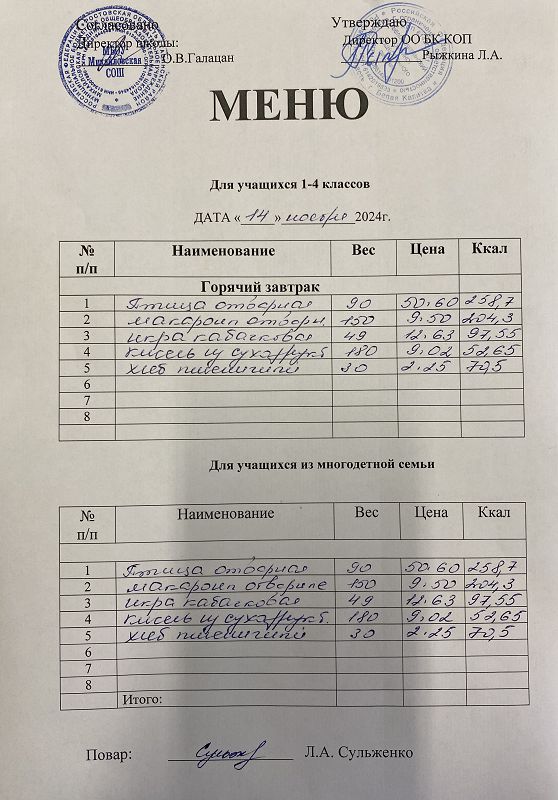 Согласовано Утверждаю
Директор школы: Директор ОО БК КОП
О.В.Галацан Рыжкина Л.А.
МБОУ
СОШ
МЕНЮ
Для учащихся 1-4 классов
ДАТА « 14 » ноября 2024г.
№ п/п Наименование Вес Цена Ккал
Горячий завтрак
1 Птица отварная 90 50.60 258,7
2 макарон отварн. 150 9.50 204,3
3 икра кабачковая 49 12.63 97,55
4 кисель из сухофрукт 180 9.02 52,65
5 хлеб пшеничный 30 2.25 70,5
6
7
8
Для учащихся из многодетной семьи
№ п/п Наименование Вес Цена Ккал
1 Птица отварная 90 50.60 258,7
2 макарон отварные 150 9.50 204,3
3 икра кабачковая 49 12.63 97,55
4 кисель из сухофрукт. 180 9.02 52,65
5 хлеб пшеничный 30 2.25 70,5
6
7
8
Итого:
Повар: Л.А. Сульженко